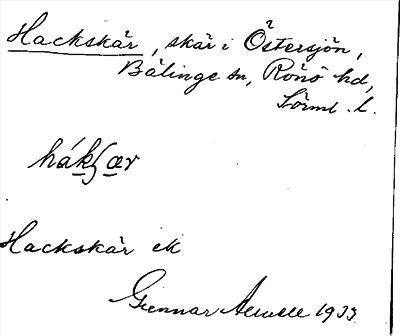 Hackskär, skär i Östersjön,
Bälinge sn, Rönö hd,
Sörml. l.
håkʃær
Hackskär ek
Gunnar 1933